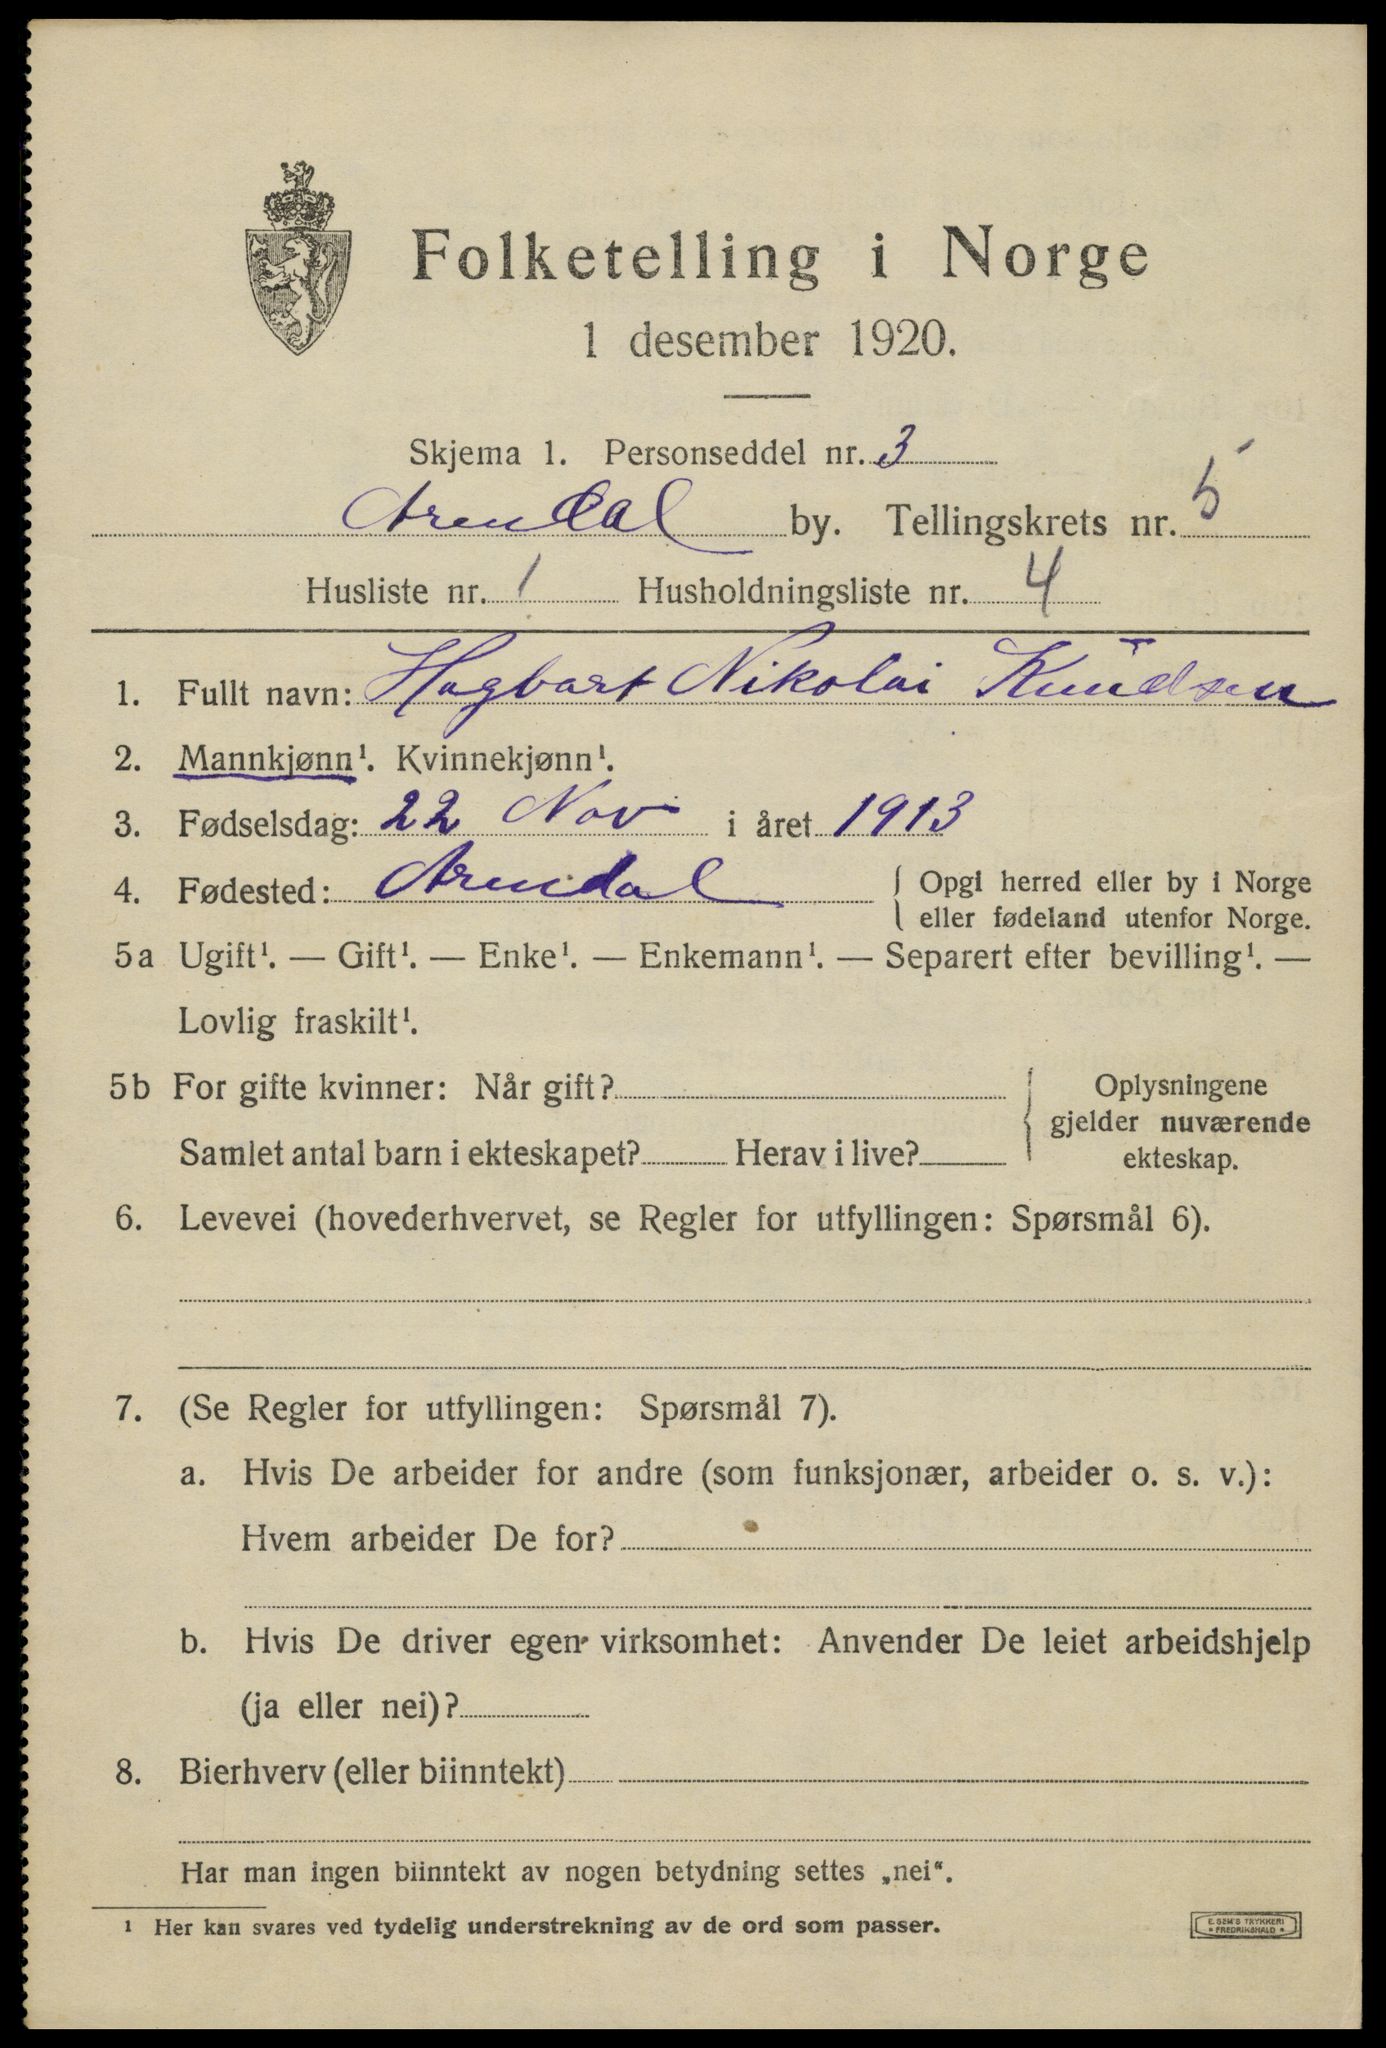 Folketelling i Norge
1 desember 1920.
Skjema 1. Personseddel nr. 3
Arendal by. Tellingskrets nr. 5
Husliste nr. 1 Husholdningsliste nr. 4
1. Fullt navn: Hagbart Nikolai Knudsen
2. Mannkjønn¹. Kvinnekjønn¹.
3. Fødselsdag: 22 Nov i året 1913
4. Fødested: Arendal { Opgi herred eller by i Norge
eller fødeland utenfor Norge.
5a Ugift¹. — Gift¹. — Enke¹. — Enkemann¹. — Separert efter bevilling¹. —
Lovlig fraskilt¹.
5b For gifte kvinner: Når gift? { Oplysningene
gjelder nuværende
Samlet antal barn i ekteskapet? Herav i live? ekteskap.
6. Levevei (hovederhvervet, se Regler for utfyllingen: Spørsmål 6).
7. (Se Regler for utfyllingen: Spørsmål 7).
a. Hvis De arbeider for andre (som funksjonær, arbeider o. s. v.):
Hvem arbeider De for?
b. Hvis De driver egen virksomhet: Anvender De leiet arbeidshjelp
(ja eller nei)?
8. Bierhverv (eller biinntekt)
Har man ingen biinntekt av nogen betydning settes „nei“.
¹ Her kan svares ved tydelig understrekning av de ord som passer.
E. SEM'S TRYKKERI
FREDRIKSHALD